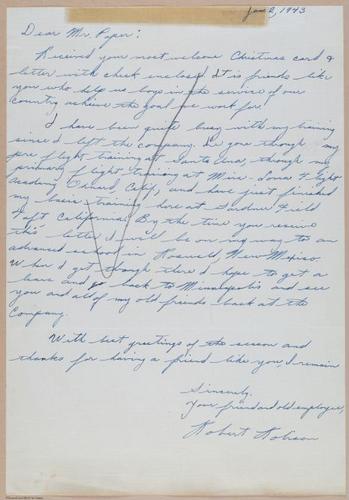 Jan 2, 1943
Dear Mr. Piper:
Received your most welcome Christmas card &
letter with check enclosed. It is friends like
you who help us boys in the service of our
country achieve the goal we work for.
I have been quite busy with my training
since I left the company. I've gone through my
pre flight training at Santa Ana, through my
primary flight training at Mira-Loma Flight
Academy Oxnard, Calif, and have just finished
my basic training here at Gardner Field
Taft California. By the time you receive
this letter I will be on my way to an
advanced school in Roswell, New Mexico.
When I get through there I hope to get a
leave and go back to Minneapolis and see
you and all of my old friends back at the
Company.
With best greetings of the season and
thanks for having a friend like you, I remain
Sincerely,
Your friend and old employee,
Robert